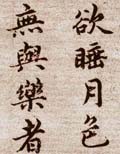 欲睡月色
無與樂者